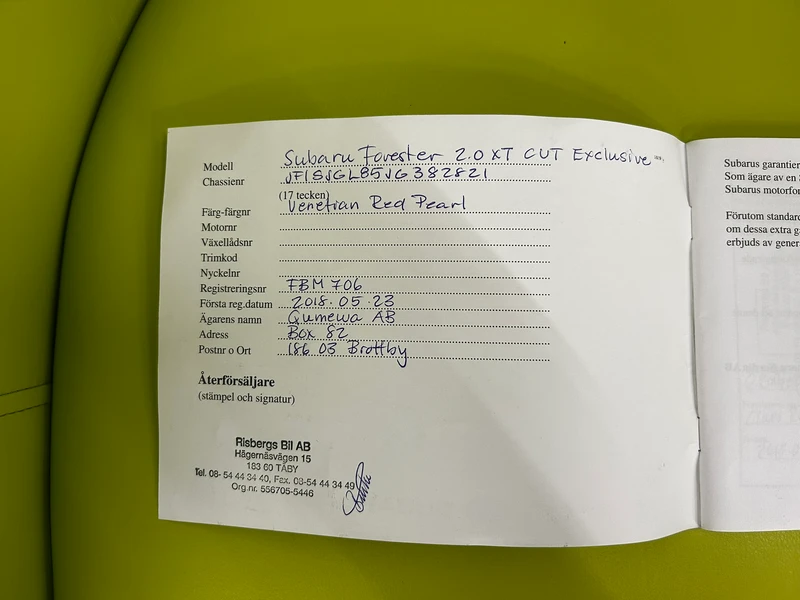 Modell Subaru Forester 2.0 XT CVT Exclusive
Chassienr JF1SJGL85JG382821
(17 tecken)
Färg-färgnr Venetian Red Pearl
Motornr
Växellådsnr
Trimkod
Nyckelnr
Registreringsnr FBM 706
Första reg.datum 2018.05.23
Ägarens namn Qumewa AB
Adress Box 82
Postnr o Ort 186 03 Brottby
Återförsäljare
(stämpel och signatur)
Risbergs Bil AB
Hägernäsvägen 15
183 60 TÄBY
Tel. 08-54 44 34 40, Fax. 08-54 44 34 49
Org.nr. 556705-5446
Subarus garantier
Som ägare av en
Subarus motorfor
Förutom standard
om dessa extra ga
erbjuds av gener